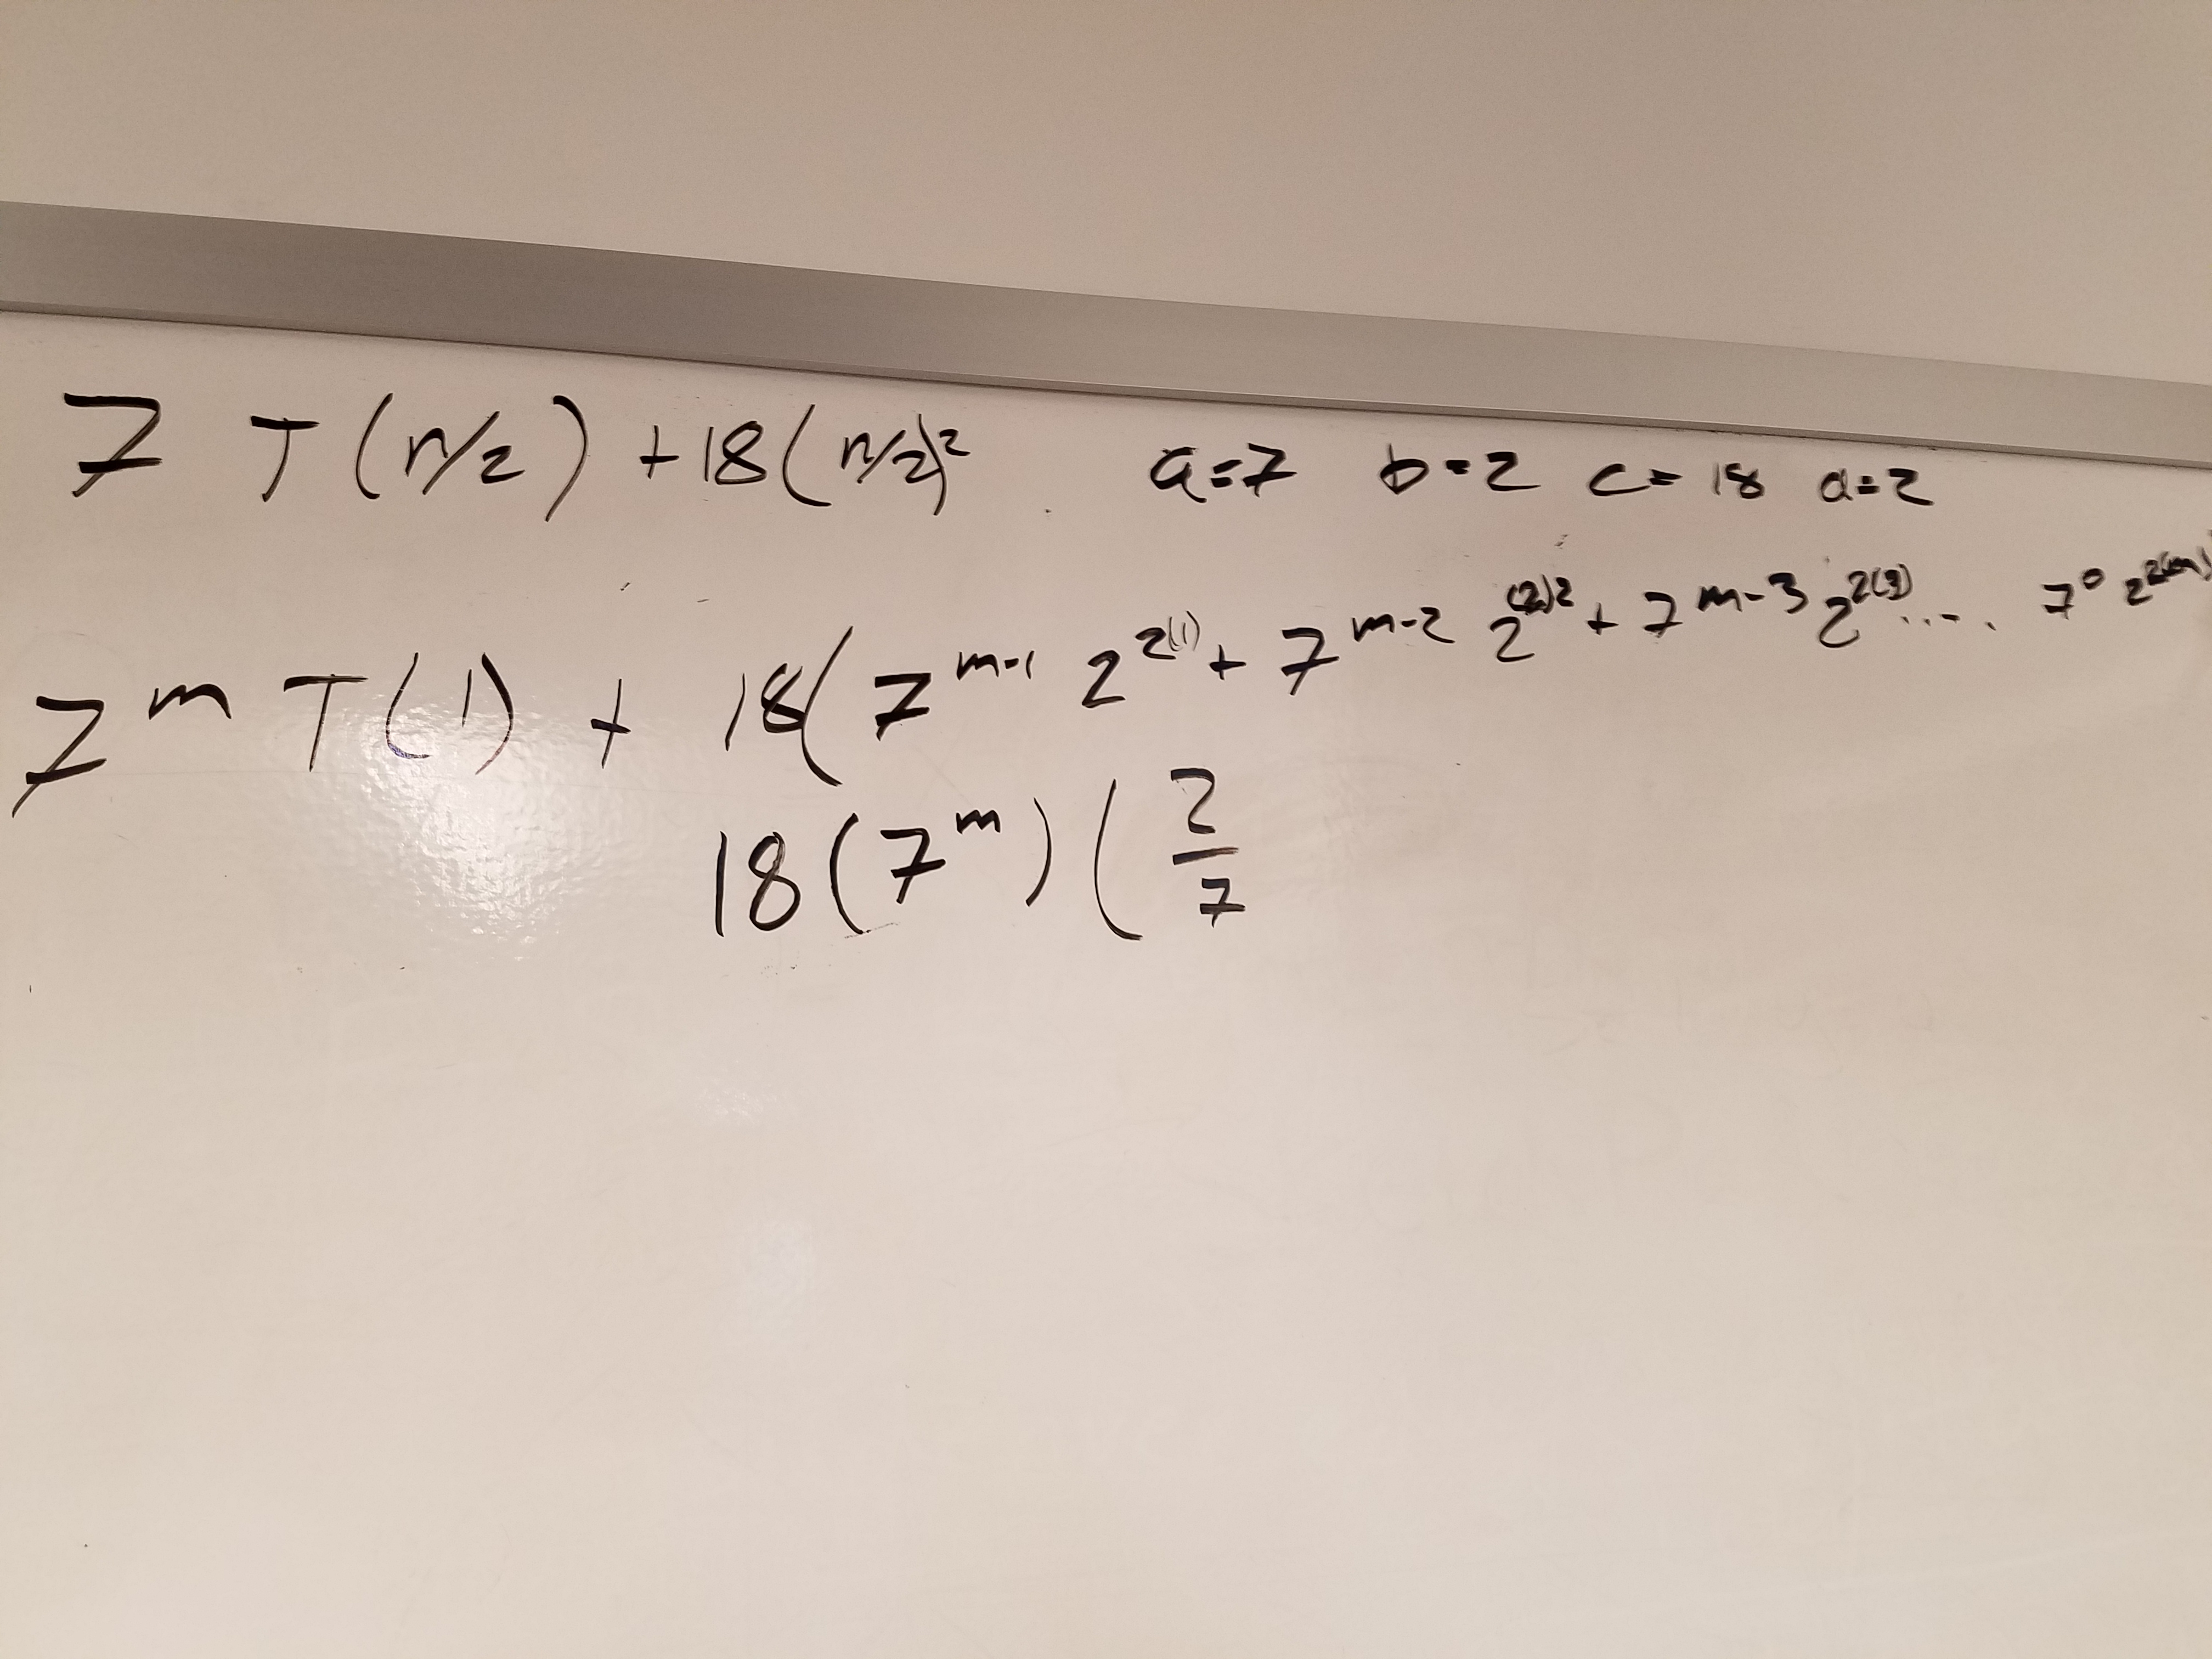 7 T(n/2) + 18(n/2)² a=7 b=2 c=18 d=2
7^m T(1) + 18(7^{m-1} 2^{2(1)} + 7^{m-2} 2^{(2)2} + 7^{m-3} 2^{2(3)} .... 7^0 2^{2(m)}
18(7^m)(2/7